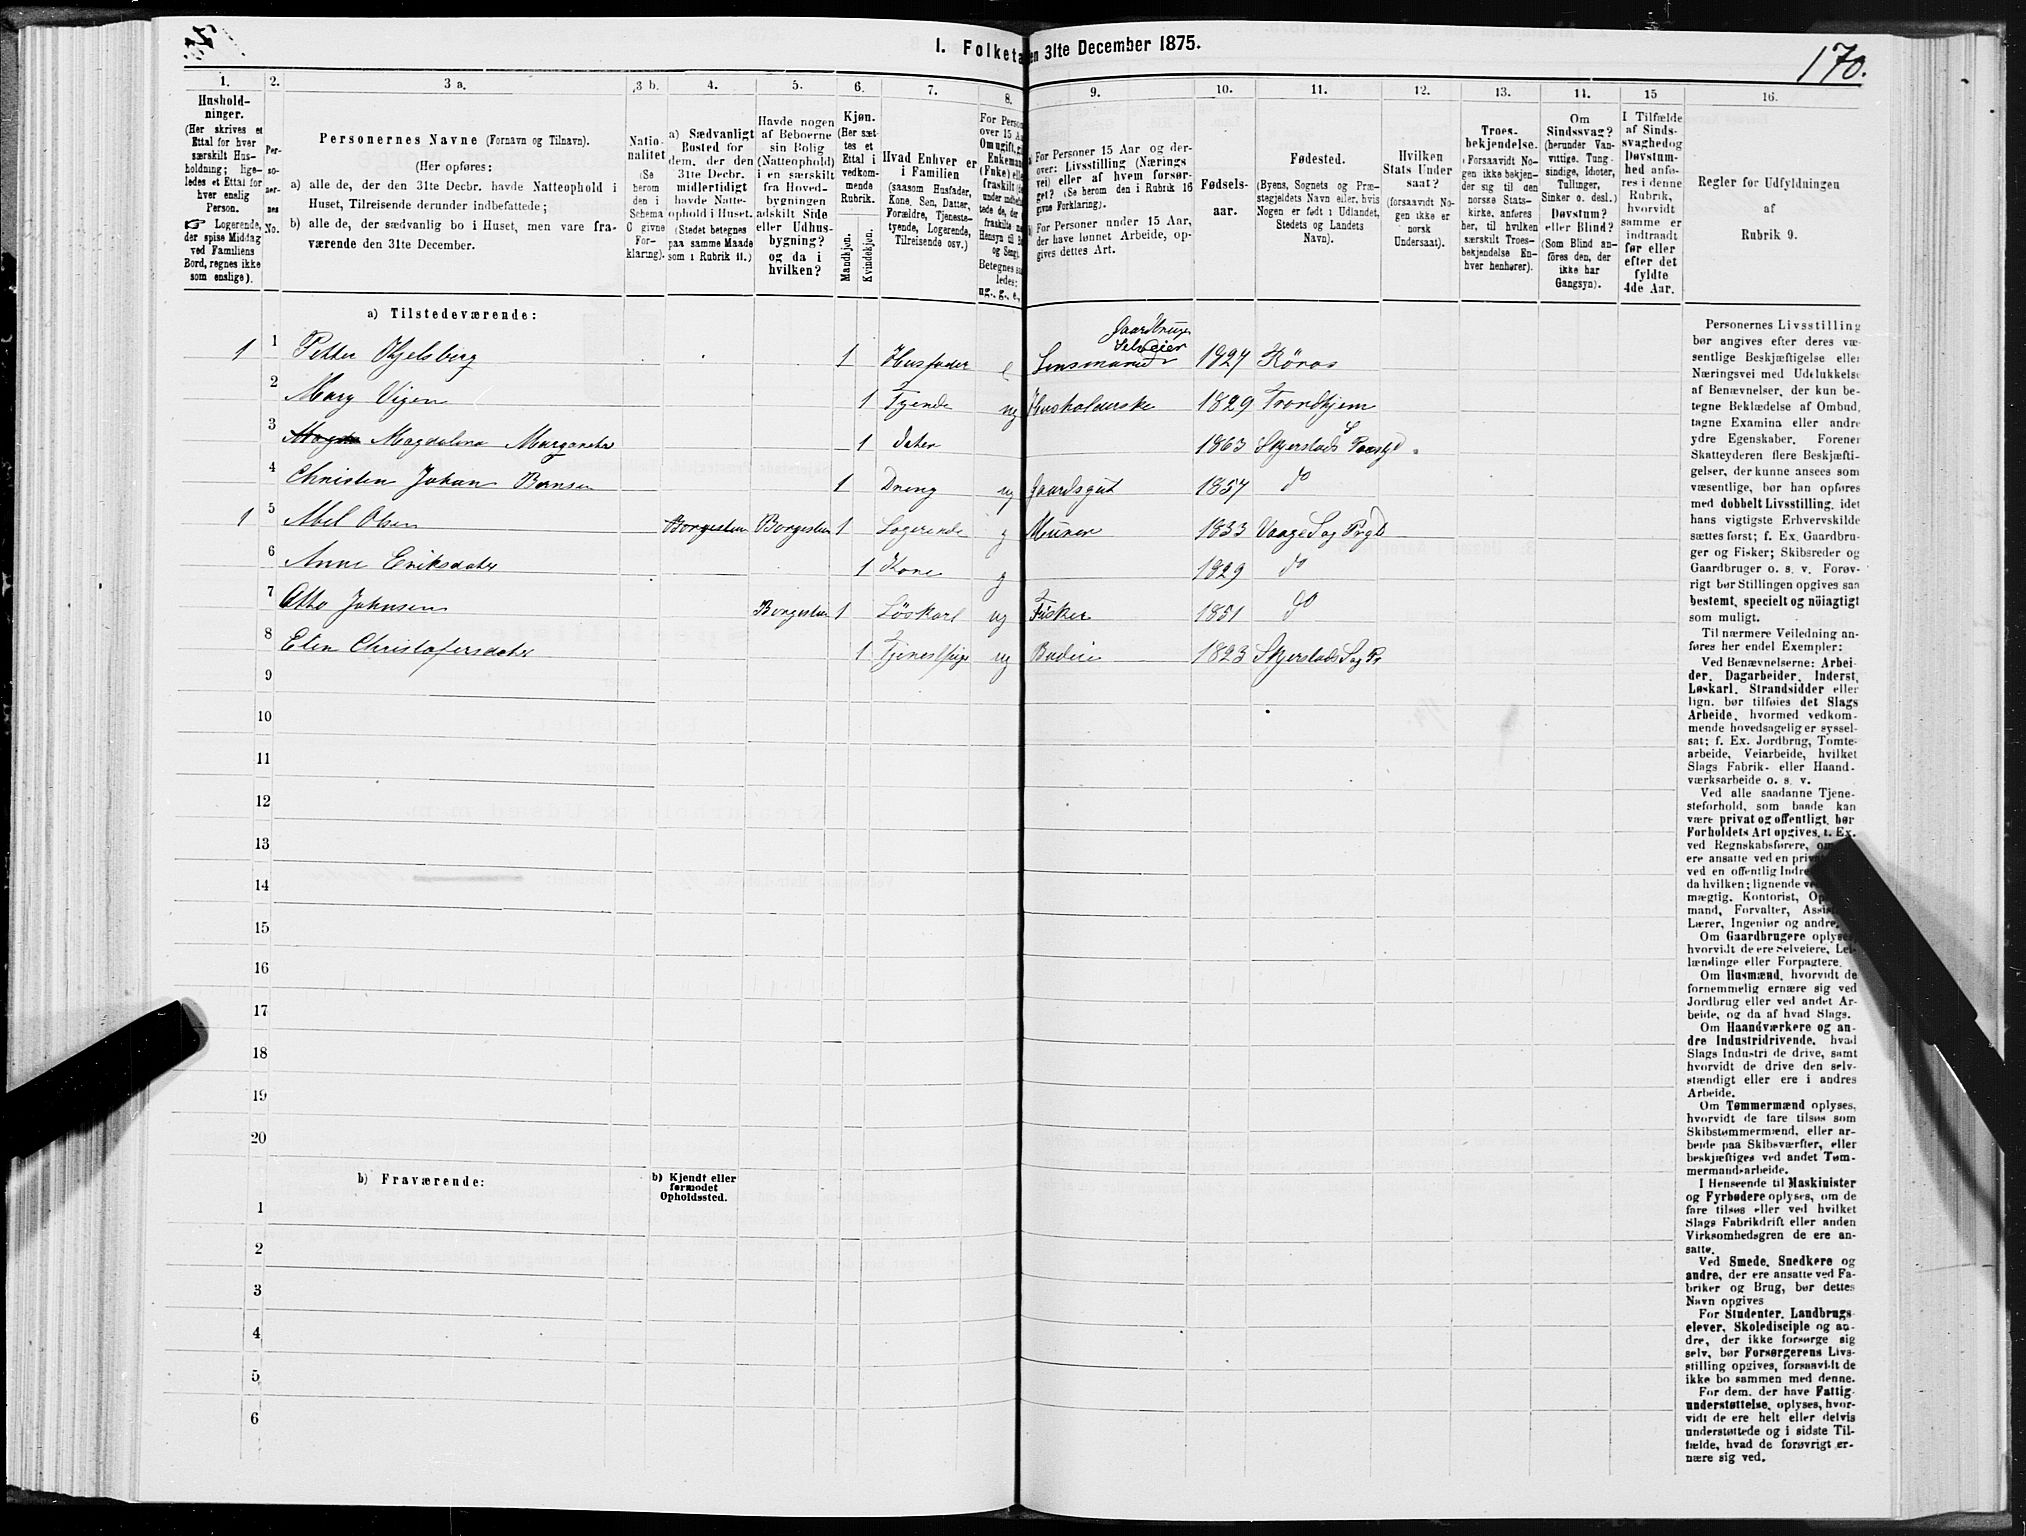 I. Folketæ
en 31te December 1875.
170.
1. 2. 3 a. 3 b. 4. 5. 6. 7. 8. 9. 10. 11. 12. 13. 14. 15 16.
Hushold-
ninger.
(Her skrives et
Ettal for hver
særskilt Hus-
holdning; lige-
ledes et Ettal for
hver enslig
Person.
☞ Logerende,
der spise Middag
ved Familiens
Bord, regnes ikke
som enslige).
Per-
so-
ner-
nes
No.
Personernes Navne (Fornavn og Tilnavn).
(Her opføres:
a) alle de, der den 31te Decbr. havde Natteophold i
Huset, Tilreisende derunder indbefattede;
b) alle de, der sædvanlig bo i Huset, men vare fra-
værende den 31te December.
Natio-
nalitet
(Se
herom
den i
Schema
C givne
For-
klaring).
a) Sædvanligt
Bosted for
dem, der den
31te Decbr.
midlertidigt
havde Natte-
ophold i Huset.
(Stedet betegnes
paa samme Maade
som i Rubrik 11.)
Havde nogen
af Beboerne
sin Bolig
(Natteophold)
i en særskilt
fra Hoved-
bygningen
adskilt Side
eller Udhus-
bygning?
og da i
hvilken?
Kjøn.
(Her sæt-
tes et
Ettal i
vedkom-
mende
Rubrik.
Mandkjøn.
Kvindekjøn.
Hvad Enhver er
i Familien
(saasom Husfader,
Kone, Søn, Datter,
Forældre, Tjeneste-
tyende, Logerende,
Tilreisende osv.)
For Person
over 15 Aa
Om ugift, gi
Enkemand
(Fnke) elle
fraskilt
Betegnes saa
ledes:
ug., g., e.,
a) For Personer 15 Aar og der-
over: Livsstilling (Nærings
vei) eller af hvem forsør-
get? (Se herom den i Rubrik 16
givne Forklaring).
b) For Personer under 15 Aar,
der have lønnet Arbeide, op-
gives dettes Art.
Fødsels-
aar.
Fødested.
(Byens, Sognets og Præ-
stegjeldets Navn eller, hvis
Nogen er født i Udlandet,
Stedets og Landets
Navn).
Hvilken
Stats Under
saat?
(forsaavidt No-
gen ikke er
norsk
Undersaat).
Troes-
bekjendelse.
(Forsaavidt No-
gen ikke bekjen-
der sig til den
norske Stats-
kirke, anføres
her, til hvilken
særskilt Troes-
bekjendelse En-
hver henhører).
Om
Sindssvag?
(herunder Van-
vittige, Tung-
sindige, Idioter,
Tullinger,
Sinker o. desl.)
Døvstum?
eller Blind?
(Som Blind an-
føres den, der
ikke har
Gangsyn).
I Tilfælde
af Sinds-
svaghed og
Døvstum-
hed anfø-
res i denne
Rubrik,
hvorvidt
samme er
indtraadt
før eller
efter det
fyldte
4de Aar.
Regler for Udfyldningen
af
Rubrik 9.
a) Tilstedeværende:
Gaardbruger
Selveier
1 1 Petter Hjelsberg 1 Husfader e Lensmand 1827 Röros
2 Marg Vigen 1 Tyende ug Husholderske 1829 Trondhjem
3 Magda Magdalena Margareta 1 Dater 1863 Skjerstads S Præstgd.
4 Christen Johan Bensen 1 Dreng ug Gaardsgut 1857 do
1 5 Abel Olsen Borgestuen Borgestuen 1 Logerende g Murer 1833 Vaage Sog Prgld
6 Anne Eriksdater 1 Kone g 1829 do
7 Otto Johnsen Borgestuen 1 Löskarl ug Fisker 1851 do
8 Elen Christofersdater 1 Tjenestpige ug Budeie 1823 Skjerstads Sog Pr
9
10
11
12
13
14
15
16
17
18
19
20
b) Fraværende:
b) Kjendt eller
formodet
Opholdssted.
1
2
3
4
5
6
Personernes Livsstilling
bør angives efter deres væ-
sentlige Beskjæftigelse eller
Næringsvei med Udelukkelse
af Benævnelser, der kun be-
tegne Beklædelse af Ombud,
tagne Examina eller andre
ydre Egenskaber. Forener
Skatteyderen flere Beskjæfti-
gelser, der kunne ansees som
væsentlige, bør han opføres
med dobbelt Livsstilling, idet
hans vigtigste Erhvervskilde
sættes først; f. Ex. Gaardbru-
ger og Fisker; Skibsreder og
Gaardbruger o. s. v. Forøv-
rigt bør Stillingen opgives saa
bestemt, specielt og nöiagtigt
som muligt.
Til nærmere Veiledning an-
føres her endel Exempler:
Ved Benævnelserne: Arbei-
der, Dagarbeider, Inderst,
Løskarl, Strandsidder eller
lign. bør tilføies det Slags
Arbeide, hvormed vedkom-
mende hovedsagelig er syssel-
sat; f. Ex. Jordbrug, Tomte-
arbeide, Veiarbeide, hvilket
Slags Fabrik- eller Haand-
værksarbeide o. s. v.
Ved alle saadanne Tjene-
steforhold, som baade kan
være privat og offentligt, bør
Forholdets Art opgives, t. Ex.
ved Regnskabsførere, om
ere ansatte ved en privat
ved en offentlig Indre
da hvilken; lignende ve
mægtig, Kontorist, Op
mand, Forvalter, Assis
Lærer, Ingeniør og andre.
Om Gaardbrugere oplyses,
hvorvidt de ere Selveiere, Lei-
lændinge eller Forpagtere.
Om Husmænd, hvorvidt de
fornemmelig ernære sig ved
Jordbrug eller ved andet Ar-
beide, og da af hvad Slags.
Om Haandværkere og an-
dre Industridrivende, hvad
Slags Industri de drive, samt
hvorvidt de drive den selv-
stændigt eller ere i andres
Arbeide.
Om Tømmermænd oplyses,
hvorvidt de fare tilsøs som
Skibstømmermænd, eller ar-
beide paa Skibsværfter, eller
beskjæftiges ved andet Tøm-
mermandsarbeide.
I Henseende til Maskinister
og Fyrbødere oplyses, om de
fare tilsøs eller ved hvilket
Slags Fabrikdrift eller anden
Virksomhedsgren de ere an-
satte.
Ved Smede, Snedkere og
andre, der ere ansatte ved Fa-
briker og Brug, bør dettes
Navn opgives
For Studenter, Landbrugs
elever, Skoledisciple og an-
dre, der ikke forsørge sig
selv, bør Forsørgerens Livs-
stilling opgives, forsaavidt de
ikke bo sammen med denne.
For dem, der have Fattig-
understøttelse, oplyses, hvor-
vidt de ere helt eller delvis
understøttede og i sidste Til-
fælde, hvad de forøvrigt er-
nære sig ved.